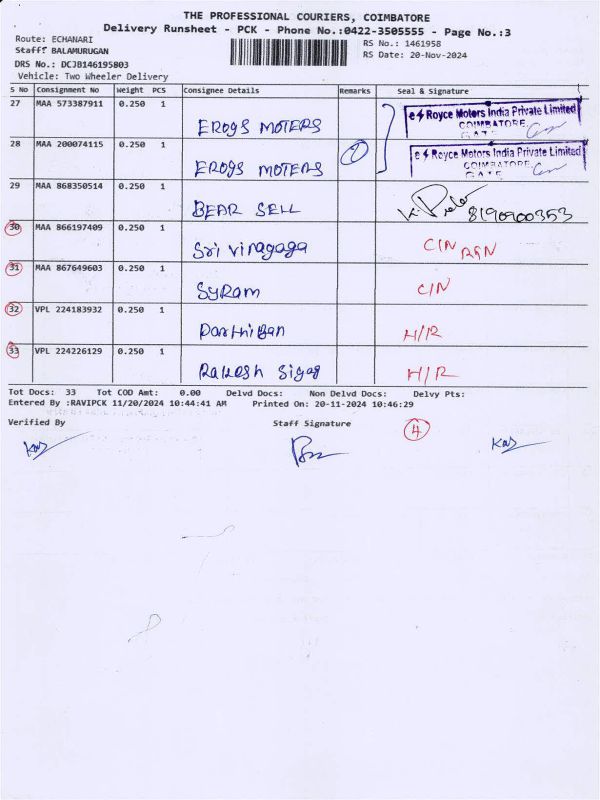 THE PROFESSIONAL COURIERS, COIMBATORE
Delivery Runsheet - PCK - Phone No.:0422-3505555 - Page No.:3
Route: ECHANARI
RS No.: 1461958
Staff: BALAMURUGAN
RS Date: 20-Nov-2024
DRS No.: DCJB146195803
Vehicle: Two Wheeler Delivery
S No Consignment No Weight PCS Consignee Details Remarks Seal & Signature
27 MAA 573387911 0.250 1 EROYS MOTERS Royce Motors India Private Limited
COIMBATORE
GATE
28 MAA 200074115 0.250 1 EROYS MOTERS Royce Motors India Private Limited
COIMBATORE
GATE
29 MAA 868350514 0.250 1 BEAR SELL 8190900353
30 MAA 866197409 0.250 1 Sri Vinagaga C/N
31 MAA 867649603 0.250 1 SYRam C/N
32 VPL 224183932 0.250 1 Parthiban H/R
33 VPL 224226129 0.250 1 Rakesh H/R
Tot Docs: 33 Tot COD Amt: 0.00 Delvd Docs: Non Delvd Docs: Delvy Pts:
Entered By :RAVIPCK 11/20/2024 10:44:41 AM Printed On: 20-11-2024 10:46:29
Verified By Staff Signature 4